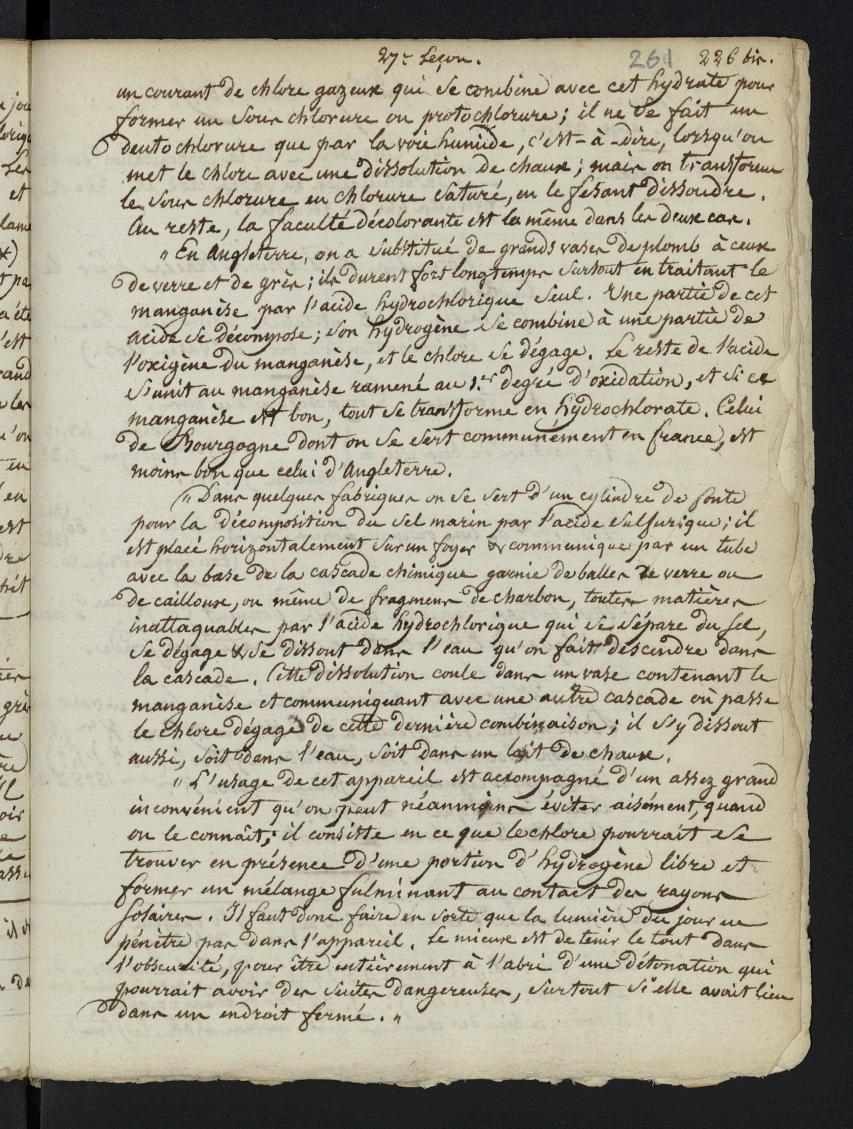 27e Leçon. 261 226 bis.
un courant de chlore gazeux qui se combine avec cet hydrate pour
former un sous chlorure ou protochlorure ; il ne se fait un
deutochlorure que par la voie humide, c'est-à-dire, lorsqu'on
met le chlore avec une dissolution de chaux ; mais on transforme
le sous chlorure en chlorure saturé, en le fesant dissoudre.
Au reste, la faculté décolorante est la même dans les deux cas.
" En Angleterre, on a substitué de grands vases de plomb à ceux
de verre et de grès ; ils durent fort longtemps surtout en traitant le
manganèse par l'acide hydrochlorique seul. Une partie de cet
acide se décompose ; son hydrogène se combine à une partie de
l'oxigène du manganèse, et le chlore se dégage. Le reste de l'acide
s'unit au manganèse ramené au 1.er degré d'oxidation, et si ce
manganèse est bon, tout se transforme en hydrochlorate. Celui
de Bourgogne dont on se sert communément en france, est
moins bon que celui d'Angleterre.
" Dans quelques fabriques on se sert d'un cylindre de fonte
pour la décomposition du sel marin par l'acide sulfurique ; il
est placé horizontalement sur un foyer & communique par un tube
avec la base de la cascade chimique garnie de balles de verre ou
de cailloux, ou même de fragmens de charbon, toutes matières
inattaquables par l'acide hydrochlorique qui se sépare du sel,
se dégage & se dissout dans l'eau qu'on fait descendre dans
la cascade. Cette dissolution coule dans un vase contenant le
manganèse et communiquant avec une autre cascade où passe
le chlore dégagé de cette dernière combinaison ; il s'y dissout
aussi, soit dans l'eau, soit dans un lait de chaux.
" L'usage de cet appareil est accompagné d'un assez grand
inconvénient qu'on peut néanmoins éviter aisément, quand
on le connaît ; il consiste en ce que le chlore pourrait se
trouver en présence d'une portion d'hydrogène libre et
former un mélange fulminant au contact des rayons
solaires. Il faut donc faire en sorte que la lumière du jour ne
pénètre pas dans l'appareil. Le mieux est de tenir le tout dans
l'obscurité, pour être entièrement à l'abri d'une détonation qui
pourrait avoir des suites dangereuses, surtout si elle avait lieu
dans un endroit fermé. "